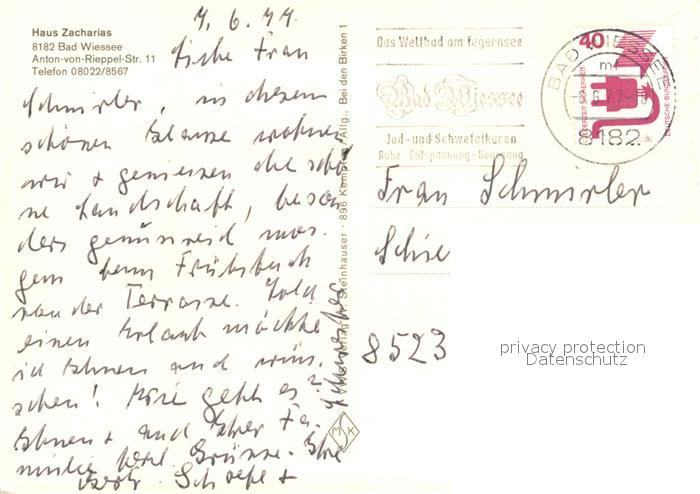 Haus Zacharias
8182 Bad Wiessee
Anton-von-Rieppel-Str. 11
Telefon 08022/8567
4.6.77.
Liebe Frau
Schmirler, in diesem
schönen Hause wohnen
wir + geniessen die schö-
ne Landschaft, beson-
ders genussreich mor-
gens beim Frühstück
von der Terrasse. Solch
einen Urlaub möchte
ich Ihnen auch wün-
schen! Wie geht es
Ihnen + und Ihrer Fa-
milie? Herzl. Grüsse. Ihre
Schwester
Steinhauser · 896 Kempten/Allg., Bei den Birken 1
Das Weltbad am Tegernsee
Bad Wiessee
Jod- und Schwefelkuren
Ruhe Entspannung Genesung
BAD WIESSEE
8182
40
JEDERZEIT SICHERHEIT
DEUTSCHE BUNDESPOST
Frau Schmirler
8523
privacy protection
Datenschutz